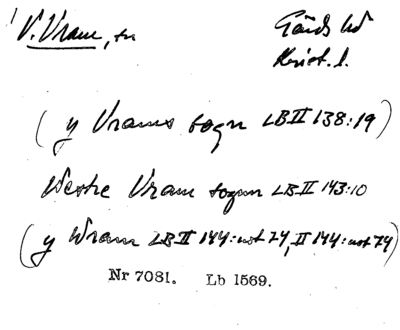 V. Vram, sn
Gärds hd
Krist. l.
(y Vrams sogn LB II 138:19)
Westre Vram sogen LB II 143:10
(y Wram LB II 144: not 74, II 144: not 74)
Nr 7081. Lb 1569.